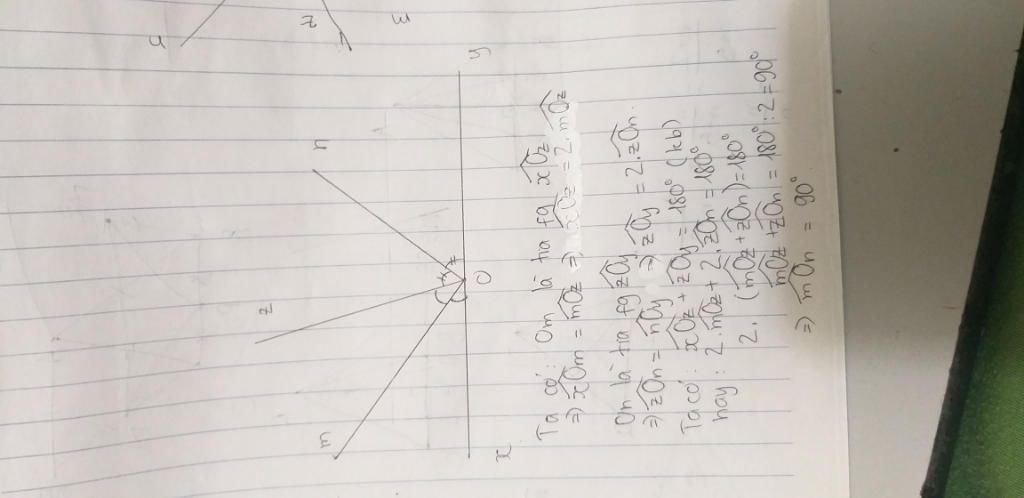 m
z
n
x
O
y
Ta có: Om là tia fg xOz
=> xOm = mOz => xOz = 2. mOz
On là tia fg zOy
=> zOn = nOy => zOy = 2. zOn.
Ta có: xOz + zOy = 180° (kb)
hay: 2. mOz + 2. zOn = 180°
2. (mOz + zOn) = 180°
mOz + zOn = 180° : 2 = 90°
=> mOn = 90°